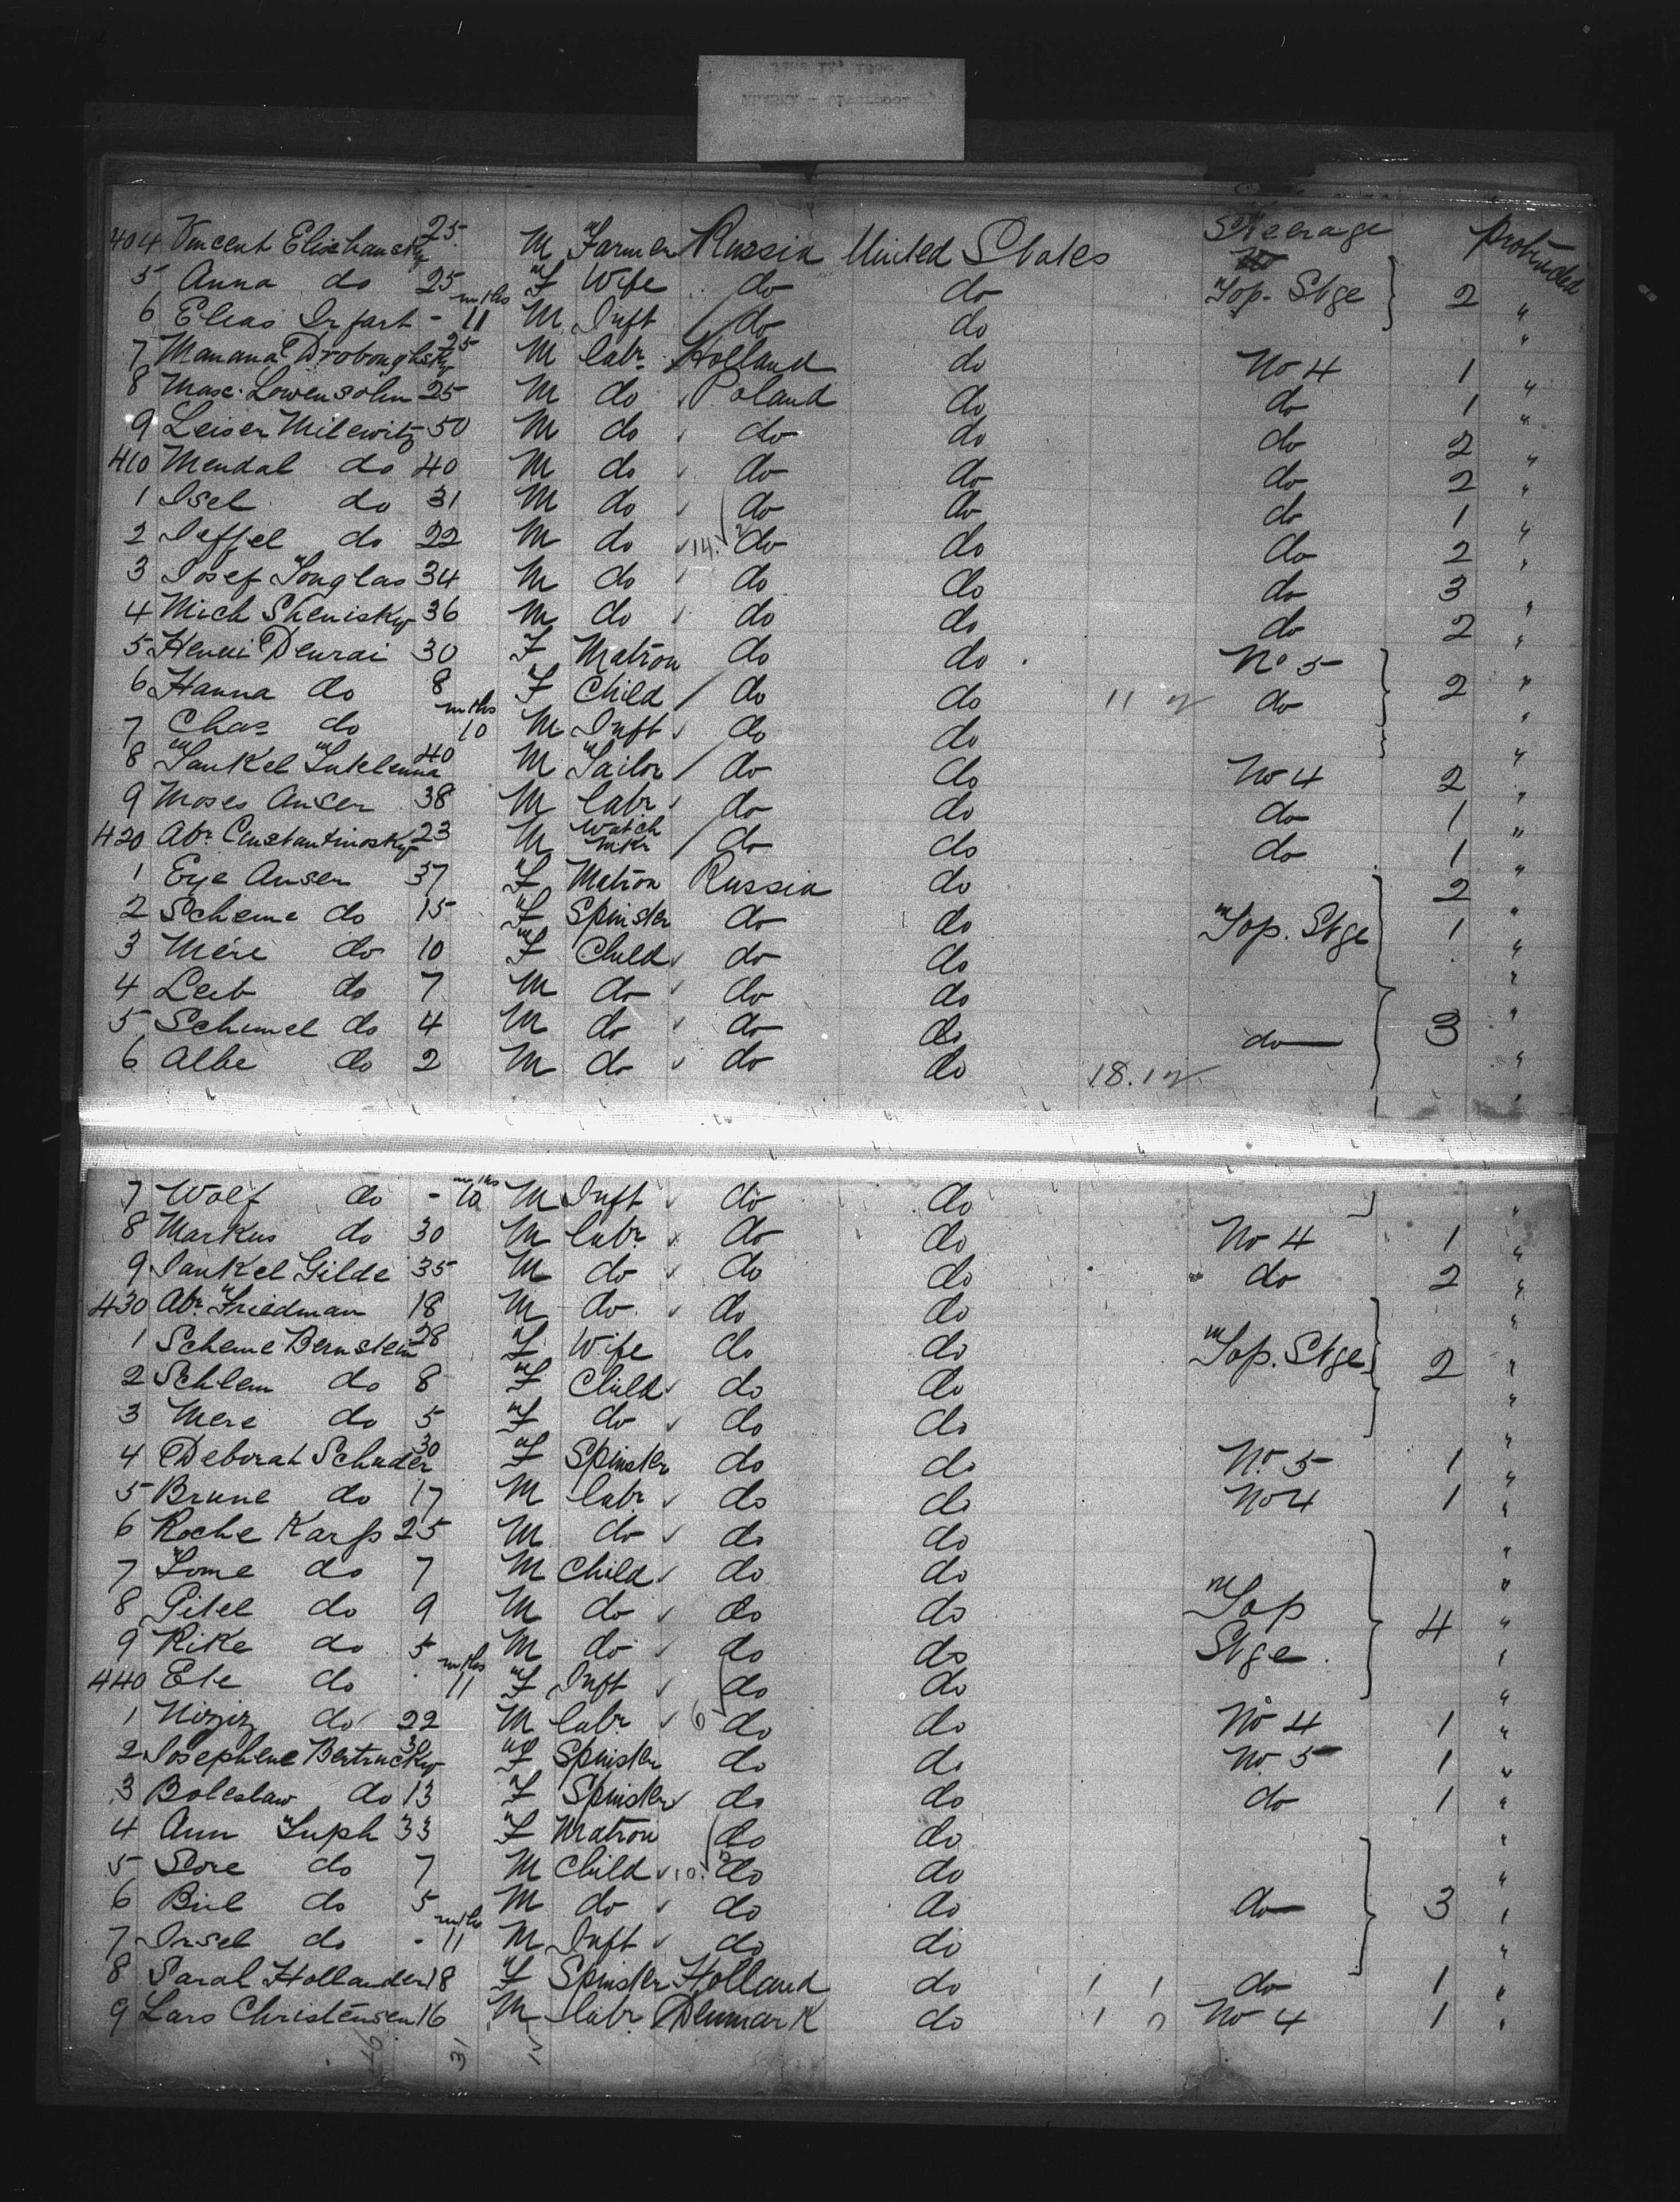 404 Vincent Elischansky 25 M Farmer Russia United States Steerage Protracted
5 Anna do 25 F Wife do do Top. Stge 2 "
6 Elias Infart - mths 11 M Inft do do "
7 Manana Drobonghsky 25 M labr. Holland do No 4 1 "
8 Max Lowensohn 25 M do Poland do do 1 "
9 Leiser Milewitz 50 M do do do do 2 "
410 Mendal do 40 M do do do do 2 "
1 Isel do 31 M do do do do 1 "
2 Ieffel do 22 M do 14. 2 do do do 2 "
3 Josef Jonglas 34 M do do do do 3 "
4 Mich Shenisky 36 M do do do do 2 "
5 Henri Denrai 30 F Matron do do No 5 "
6 Hanna do 8 F Child do do 11 do 2 "
7 Chas do mths 10 M Inft do do "
8 Tankel 40 M Tailor do do No 4 2 "
9 Moses Anser 38 M labr do do do 1 "
420 Abr. Constantinosky 23 M Watch mkr do do do 1 "
1 Eye Anser 37 F Matron Russia do 2 "
2 Scheme do 15 F Spinster do do Top. Stge 1 "
3 Meri do 10 F Child do do "
4 Leib do 7 M do do do "
5 Schimel do 4 M do do do do 3 "
6 Albe do 2 M do do do 18.1 "
7 Wolf do - mths 10 M Inft do do "
8 Markus do 30 M labr. do do No 4 1 "
9 Jankel Gilde 35 M do do do do 2 "
430 Abr. Friedman 18 M do do do "
1 Scheme Bernstein 28 F Wife do do Top. Stge 2 "
2 Schlem do 8 F Child do do "
3 Mere do 5 F do do do "
4 Deborah Schuder 30 F Spinster do do No. 5 1 "
5 Brune do 17 M labr do do No 4 1 "
6 Roche Karfs 25 M do do do "
7 Tome do 7 M Child do do "
8 Pitel do 9 M do do do Top 4 "
9 Rike do 5 M do do do Stge "
440 Ete do mths 11 F Inft do do "
1 do 22 M labr 6 do do No 4 1 "
2 Josephene Bertrucky 30 F Spinster do do No. 5 1 "
3 Boleslaw do 13 F Spinster do do do 1 "
4 Ann Tuph 33 F Matron do do "
5 Sore do 7 M Child 10. do do "
6 Biel do 5 M do do do do 3 "
7 Insel do - mths 11 M Inft do do "
8 Sarah Hollander 18 F Spinster Holland do 1 1 do 1 "
9 Lars Christensen 16 M labr Denmark do 1 0 No 4 1 "
46 31